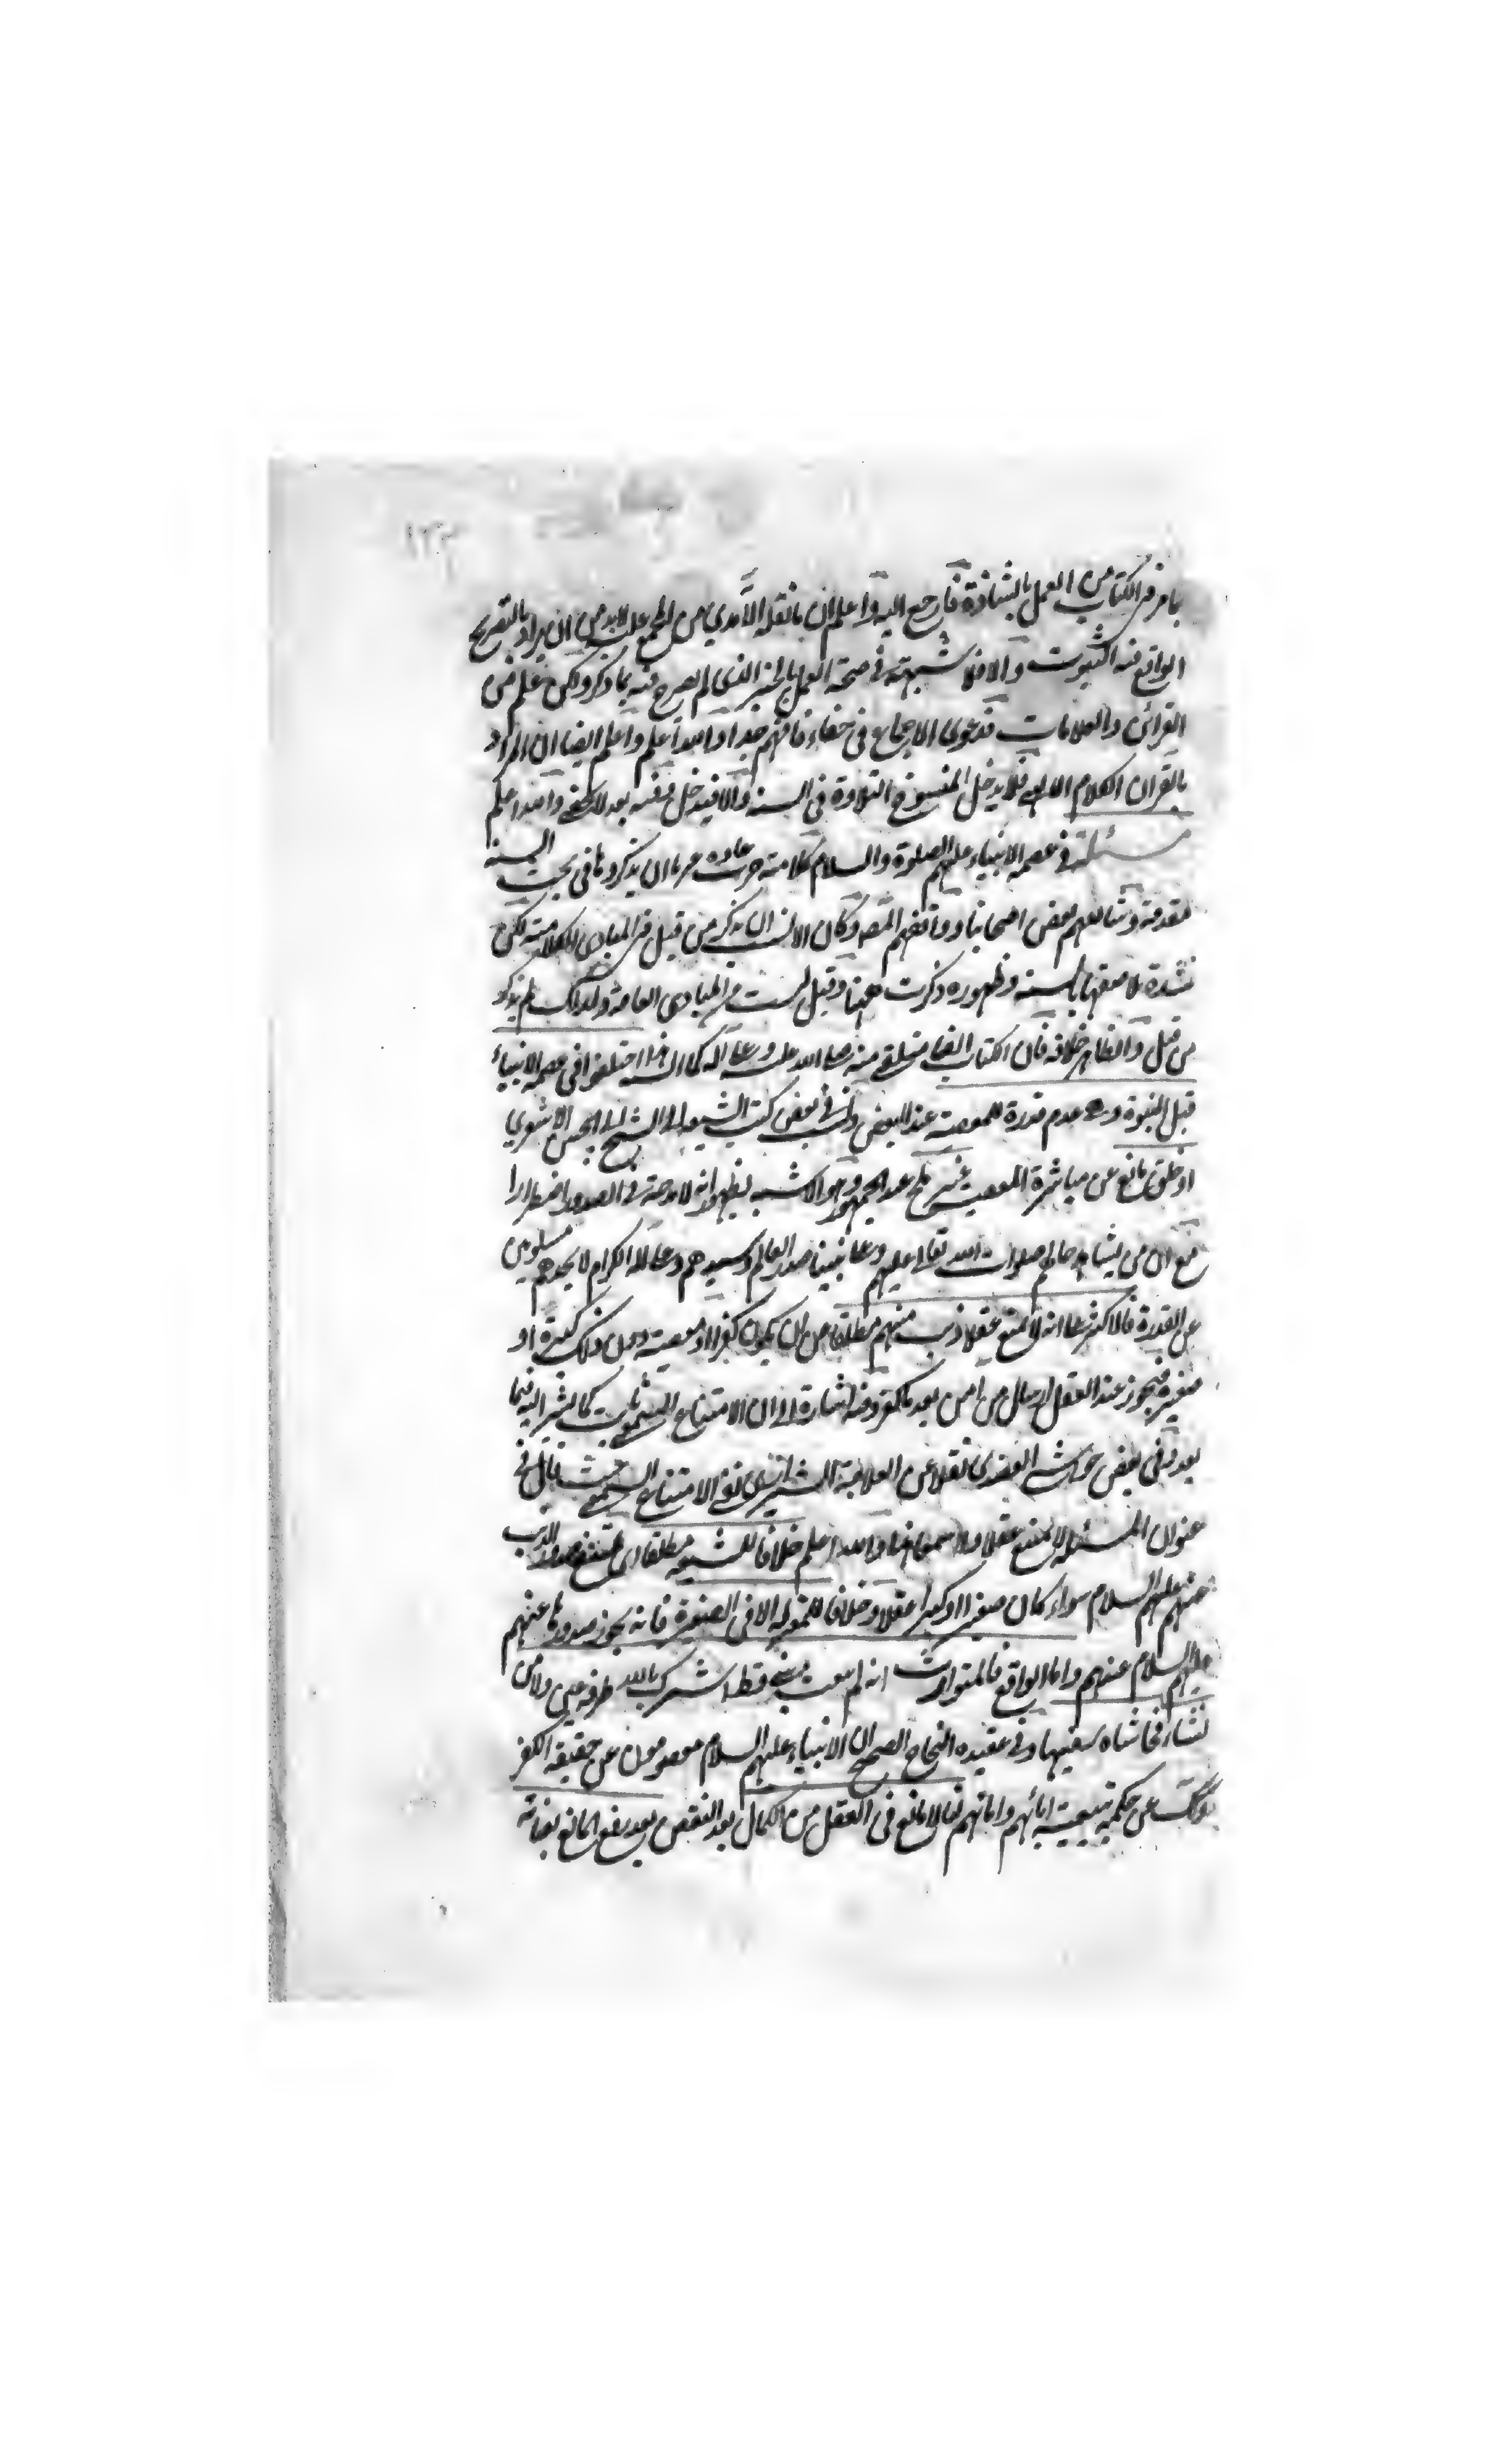 ١٣٢
بامر في الكتاب من العمل بالشاذة فارجع اليه واعلم ان ما نقله الآمدي من المجمع عليه لابد من ان يراد بالتصريح
الواقع فيه الثبوت والا فلا شبهة في صحة العمل بالخبر الذي لم يصرح فيه بما ذكر ولكن علم من
القرائن والعلامات فدعوى الاجماع في خفاء فافهم جدا والله اعلم واعلم ايضا ان المراد
بالقران الكلام الالهي فلا يدخل المنسوخ التلاوة في السنة والا فيدخل وفيه بعد لا يخفى والله اعلم
مسئلة في عصمة الانبياء عليهم الصلوة والسلام كلامية جرت عادة ان يذكروها في بحث السنة
مقدمة وشايعهم بعض اصحابنا ووافقهم المص وكان الانسب ان يذكر من قبل في المبادي الكلامية لكن
لشدة تلاصقها بالسنة وظهوره ذكرت ههنا وقيل ليست من المبادي العامة ولذلك لم يذكر
من قبل والظاهر خلافه فان الكتاب ايضا متلقى منه صلى الله عليه وعلى آله كالسنة هذا اختلفوا في عصمة الانبياء
قبل النبوة وهي عدم قدرة المعصية عند البعض ونسب في بعض كتب الشيعة الى الشيخ ابي الحسن الاشعري
او خلق مانع عن مباشرة المعصية غير ملجئ عند الجمهور وهو الاشبه لظهور انه لا مدحة في الصدور اضطرارا
مع ان من يشاهد حالهم صلوات الله تعالى عليهم وعلى نبينا صدر العالم وسيدهم وعلى اله الكرام لا يجدهم مسلوبين
عن القدرة فالاكثر على انه لا يمتنع عقلا ذنب منهم مطلقا من ان يكون كفرا او معصية دون ذلك كبيرة او
صغيرة فيجوز عند العقل ارسال من امن بعد ما كفر وفيه اشارة الى ان الامتناع السمعي ثابت كما يشير اليه فيما
بعد وفي بعض حواشي العضدي نقلا عن العلامة الشيرازي نفي الامتناع السمعي حيث قال في
عنوان المسئلة لا يمتنع عقلا ولا سمعا هذا والله اعلم خلافا للشيعة مطلقا اي يمتنع صدور الذنب
عنهم عليهم السلام سواء كان صغيرا او كبيرا عقلا وخلافا للمعتزلة الا في الصغيرة فانه يجوز صدورها عنهم
عليهم السلام عندهم واما الواقع فالمتوارث انه لم يبعث نبي قط اشرك بالله طرفة عين ولا من
نشأ فحاشا سفيها وفي عقيدة النجاح الصحيح ان الانبياء عليهم السلام معصومون عن حقيقة الكفر
عن حكمه بتبعية ابائهم وامهاتهم اذ لا مانع في العقل من الكمال بعد النقص بعد رفع المانع